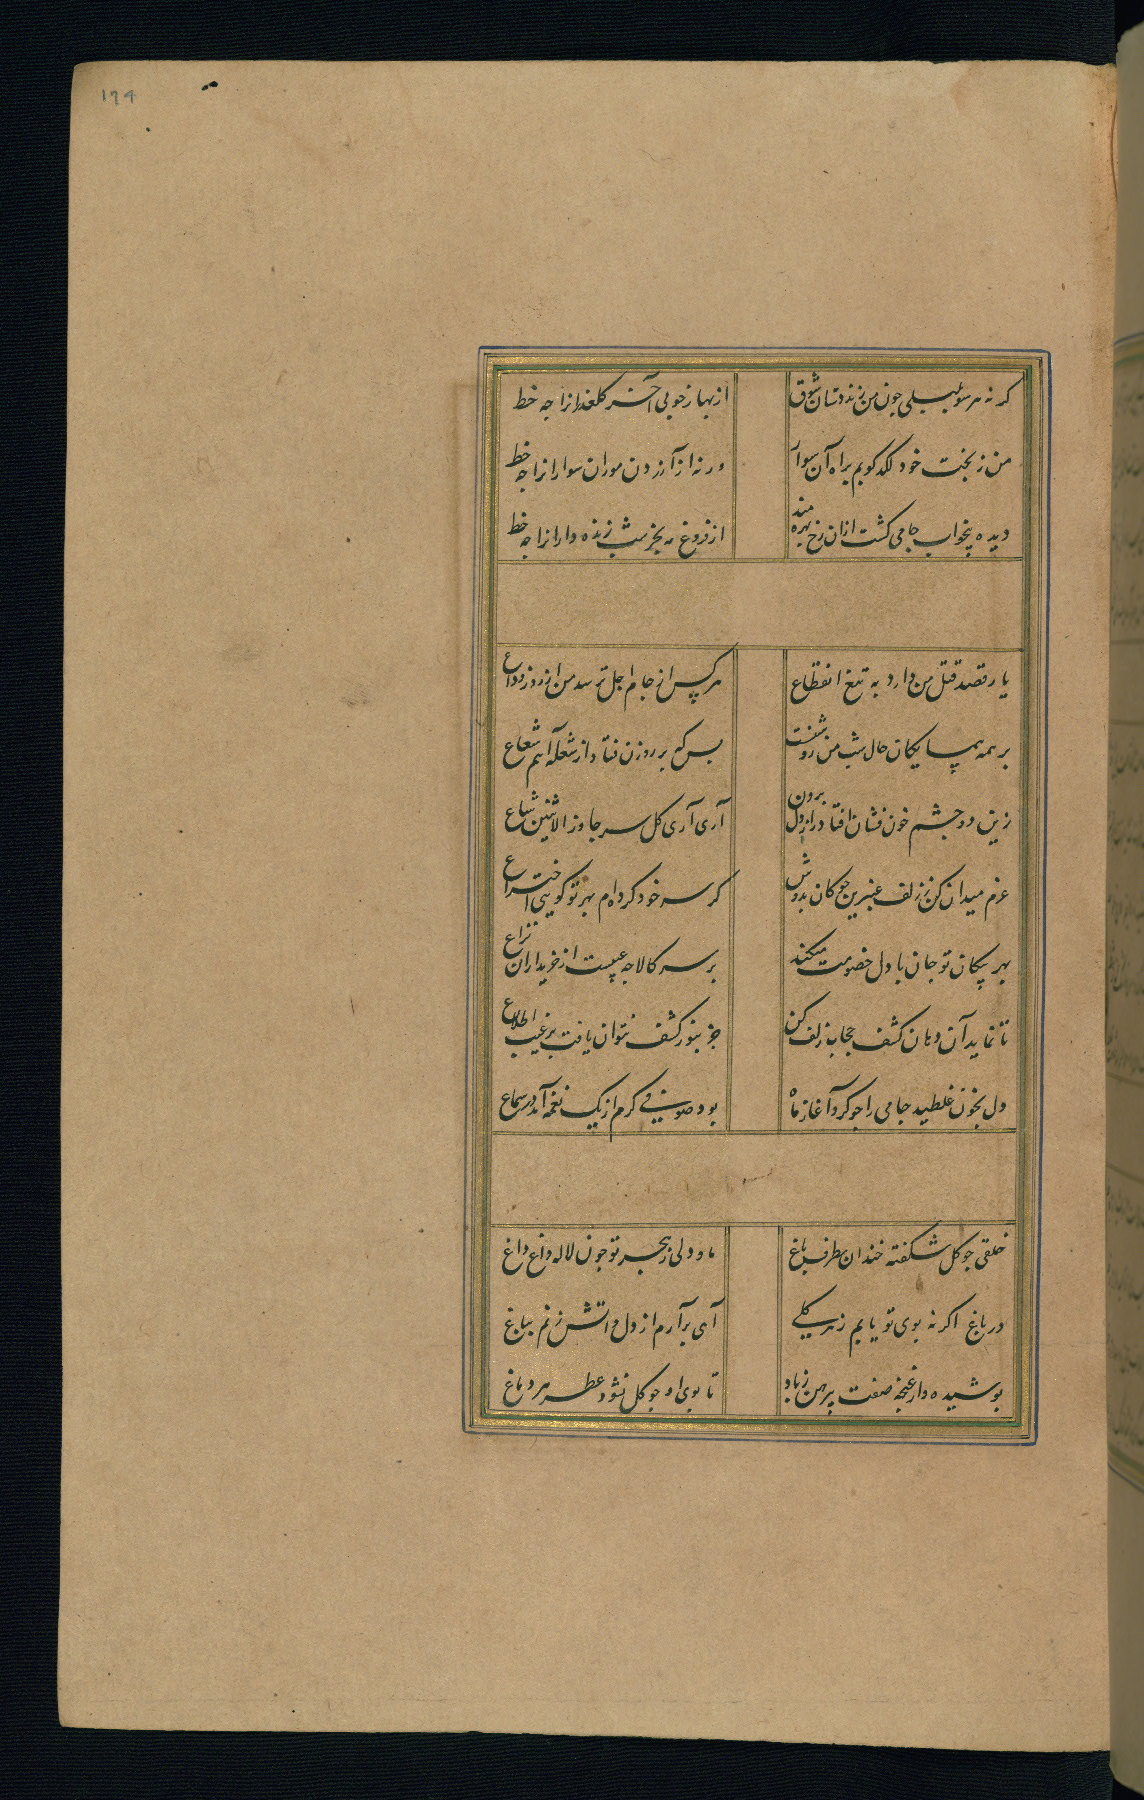 ۱۷۴
کر نه هر سو بلبلی چون من زند دستان شوق از بهار خوبی آخر کلعذارانرا چه خط
من ز بخت خود لکد کوبم براه آن سوار ورنه از آزردن موران سوارانرا چه خط
دیده بیخواب جامی کشت ازان رخ بهره مند از فروغ مه بجز شب زنده دارانرا چه خط
یار قصد قتل من دارد به تیغ انقطاع هر کس از جام اجل ترسد من از روز وداع
بر همه همسایکان حال شب من روشنست بس که بر روزن فتاد از شعله آهم شعاع
زین دو چشم خون فشان افتاد راز دل برون آری آری کل سر جاوز الاثنین شاع
عزم میدان کن ز زلف عنبرین چوکان بدوش کز سر خود کرده‌ام بهر تو کویی اختراع
بهر پیکان تو جان با دل خصومت میکند بر سر کالا چه عیبست از خریداران نزاع
تا نماید آن دهان کشف حجاب زلف کن جز بنور کشف نتوان یافت بر غیب اطلاع
دل بخون غلطید جامی را چو کرد آغاز ماه بود صوفی کرم از یک نغمه آمد در سماع
خلقی چو کل شکفته خندان بطرف باغ ما و دلی ز هجر تو چون لاله داغ داغ
در باغ اکر نه بوی تو یابم ز هر کلی آهی برآرم از دل و آتش زنم بباغ
پوشیده دار غنچه صفت پیرهن ز باد تا بوی او چو کل نشود عطر هر دماغ